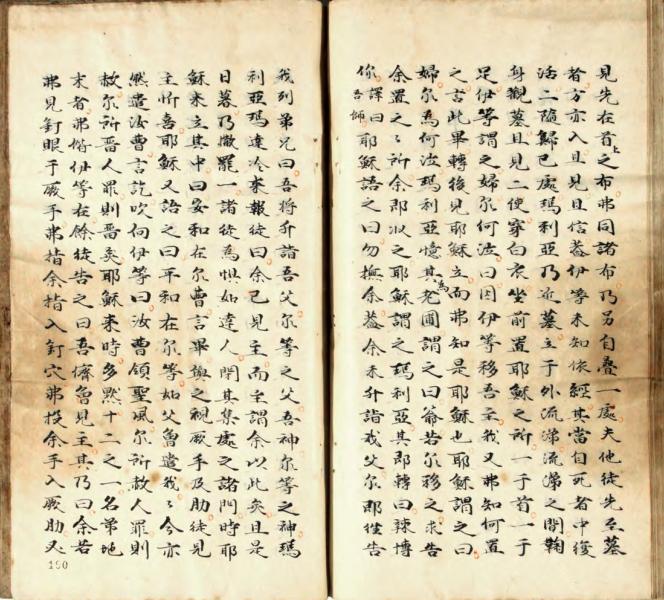 見先在首上之布弗同諸布乃另自疊一處夫他徒先至墓
者方亦入且見且信葢伊等未知依經其當自死者中復
活二隨歸已處瑪利亞乃近墓立于外流涕流涕之間鞠
身觀墓且見二使穿白衣坐前置耶穌之所一于首一于
足伊等謂之婦尔何泣曰因伊等移吾主我又弗知何置
之言此畢轉後見耶穌立而弗知是耶穌也耶穌謂之曰
婦尔為何泣瑪利亞憶其為宅圃謂之曰爺若尔移之求告
余置之之所余即取之耶穌謂之瑪利亞其即轉曰辣博
你譯曰吾師耶穌語之曰勿撫余葢余未升詣我父尔即徃告
我列弟兄曰吾將升詣吾父尔等之父吾神尔等之神瑪
利亞瑪達冷來報徒曰余已見主而主謂余以此矣且是
日暮乃撒罷一諸徒為惧如達人閉其集處之諸門時耶
穌來立其中曰安和在尔曹言畢與之視厥手及肋徒見
主忻喜耶穌又語之曰平和在尔等如父魯遣我我今亦
然遣汝曹言訖吹向伊等曰汝曹領聖風尔所赦人罪則
赦尔所畱人罪則畱矣耶穌來時多默十二之一名弟地
末者弗偕伊等在餘徒告之曰吾儕魯見主其乃曰余若
弗見釘眼于厥手弗指余指入釘穴弗投余手入厥肋又
190